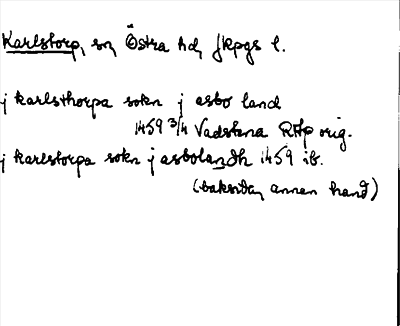 Karlstorp, sn, Östra hd, Jkpgs l.
j karlsthorpa sokn j asbo land
1459 3/4 Vadstena RAp orig.
j karlstorpa sokn j asbolandh 1459 ib.
(baksidan, annen hand)